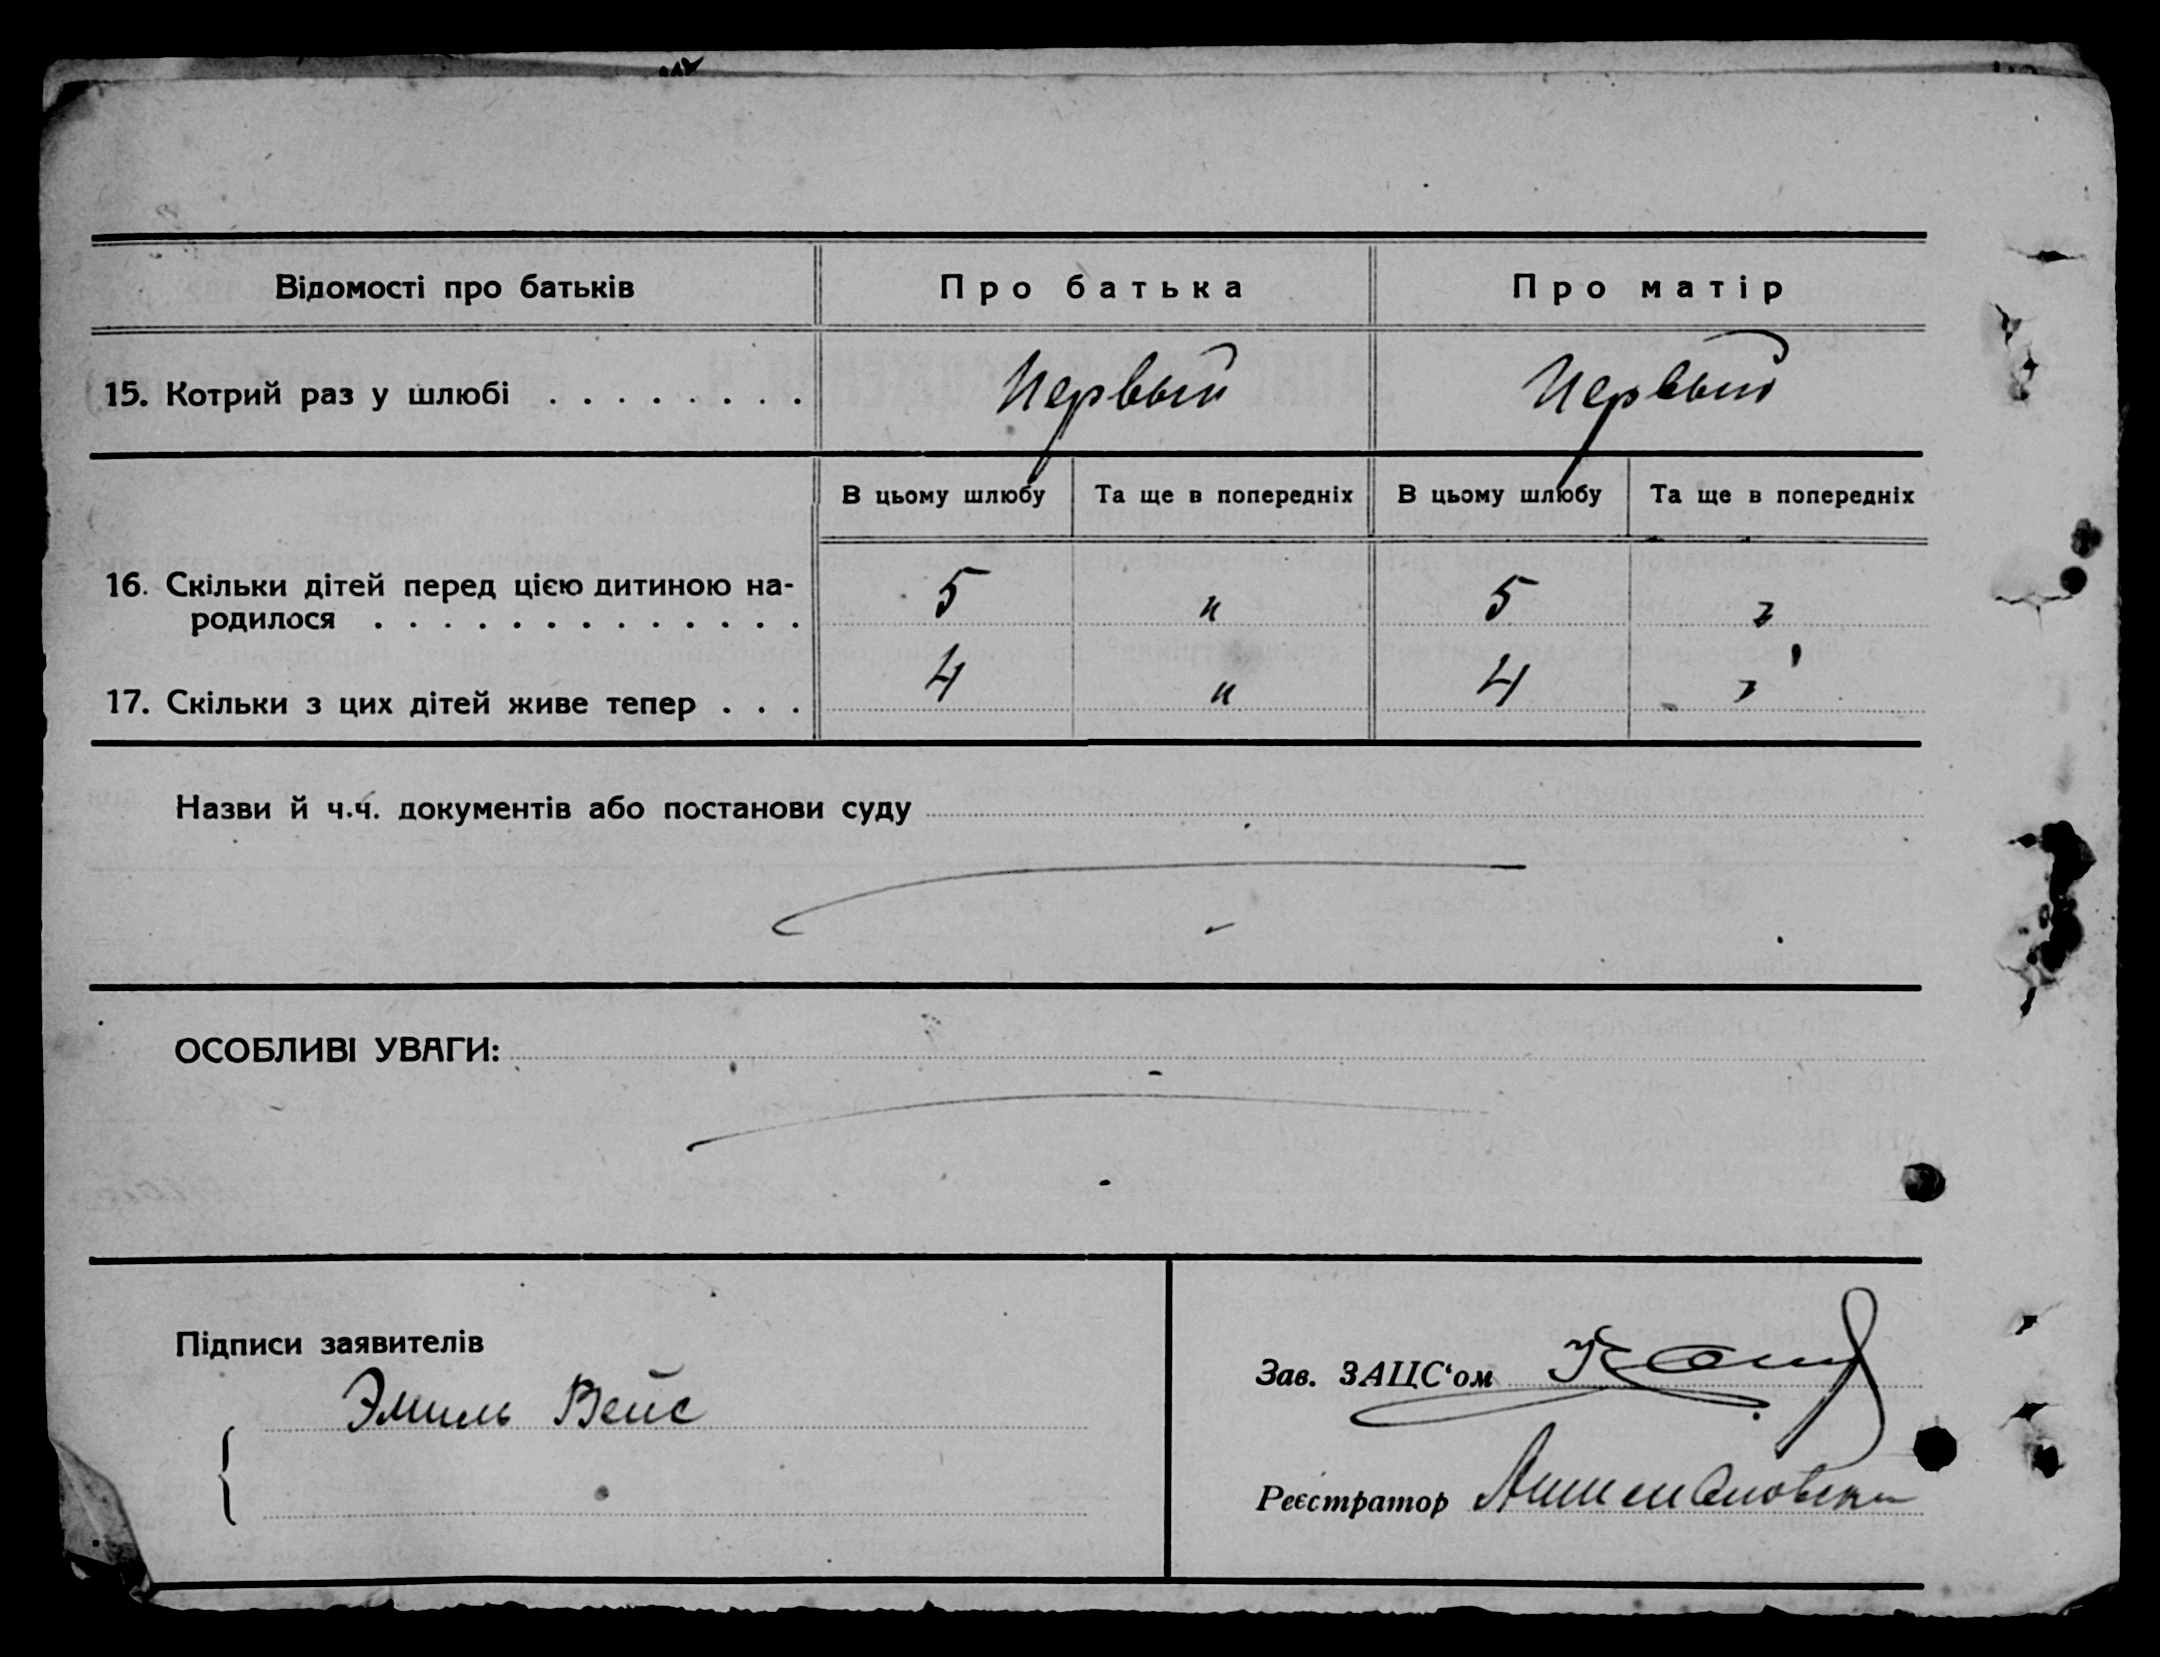 Відомості про батьків Про батька Про матір
15. Котрий раз у шлюбі . . . . . . . . Первый Первый
В цьому шлюбу Та ще в попередніх В цьому шлюбу Та ще в попередніх
16. Скільки дітей перед цією дитиною на-
родилося . . . . . . . . . . . . . 5 " 5 "
17. Скільки з цих дітей живе тепер . . . 4 " 4 "
Назви й ч.ч. документів або постанови суду
ОСОБЛИВІ УВАГИ:
Підписи заявителів
Эмиль Вейс
Зав. ЗАЦС'ом
Реєстратор